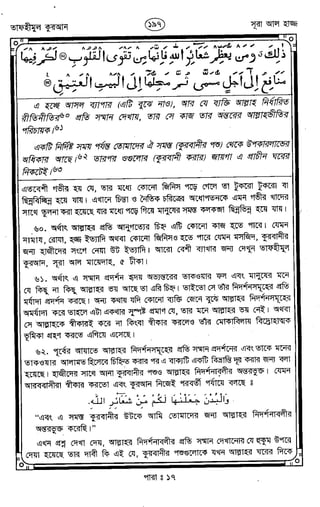 তাফহীমুল কুরআন
১৯৭
সূরা আল হাজ্জ
ذٰلِكَ ۚ وَمَنْ يُعَظِّمْ شَعَائِرَ اللّٰهِ فَاِنَّهَا مِنْ تَقْوَى الْقُلُوْبِ ۞ لَكُمْ فِيْهَا
مَنَافِعُ اِلٰٓى اَجَلٍ مُّسَمًّى ثُمَّ مَحِلُّهَآ اِلَى الْبَيْتِ الْعَتِيْقِ ۞
এ হচ্ছে আসল ব্যাপার (এটি বুঝে নাও), আর যে ব্যক্তি আল্লাহ নির্ধারিত
রীতিনীতির৬০ প্রতি সম্মান দেখায়, তার সে কাজ তার অন্তরের আল্লাহভীতির
পরিচায়ক।৬১
একটি নির্দিষ্ট সময় পর্যন্ত তোমাদের ঐ সমস্ত (কুরবানীর পশু) থেকে উপকারলাভের
অধিকার আছে।৬২ তারপর ওগুলোর (কুরবানী করার) জায়গা এ প্রাচীন ঘরের
নিকটেই।৬৩
এতবেশী গভীর হয় যে, তার মধ্যে কোনো জিনিস পড়ে গেলে তা টুকরো টুকরো বা
ছিন্নবিচ্ছিন্ন হয়ে যায়। এখানে চিন্তা ও নৈতিক চরিত্রের অধোপতনকে এমন গভীর খাদের
সাথে তুলনা করা হয়েছে যার মধ্যে পড়ে গিয়ে মানুষের সমস্ত কলকব্জা ছিন্নভিন্ন হয়ে যায়।
৬০. অর্থাৎ আল্লাহর প্রতি আনুগত্যের চিহ্ন এটি কোনো কাজ হতে পারে। যেমন
নামায, রোযা, হজ্জ ইত্যাদি অথবা কোনো জিনিসও হতে পারে যেমন মসজিদ, কুরবানীর
জন্য হাজীদের সংগে নেয়া উট ইত্যাদি। আরো বেশী ব্যাখ্যার জন্য দেখুন তাফহীমুল
কুরআন, সূরা আল মায়েদাহ, ৫ টীকা।
৬১. অর্থাৎ এ সম্মান প্রদর্শন হৃদয় অভ্যন্তরের তাকওয়ার ফল এবং মানুষের মনে
যে কিছু না কিছু আল্লাহর ভয় আছে তা এরি চিহ্ন। তাইতো সে তাঁর নিদর্শনসমূহের প্রতি
মর্যাদা প্রদর্শন করছে। অন্য কথায় যদি কোনো ব্যক্তি জেনে বুঝে আল্লাহর নিদর্শনসমূহের
অমর্যাদা করে তাহলে এটা একথার সুস্পষ্ট প্রমাণ যে, তার মনে আল্লাহর ভয় নেই। অথবা
সে আল্লাহকে স্বীকারই করে না কিংবা স্বীকার করলেও তাঁর মোকাবিলায় বিদ্রোহাত্মক
ভূমিকা গ্রহণ করতে এগিয়ে এসেছে।
৬২. পূর্বের আয়াতে আল্লাহর নিদর্শনসমূহের প্রতি সম্মান প্রদর্শনের এবং তাকে মনের
তাকওয়ার আলামত হিসেবে চিহ্নিত করার পর এ বাক্যটি একটি বিভ্রান্তি দূর করার জন্য বলা
হয়েছে। হাজীদের সাথে আনা কুরবানীর পশুও আল্লাহর নিদর্শনাবলীর অন্তরভুক্ত। যেমন
আরববাসীরা স্বীকার করতো এবং কুরআন নিজেই পরবর্তী পর্যায়ে বলছে ঃ
وَالْبُدْنَ جَعَلْنٰهَا لَكُمْ مِّنْ شَعَائِرِ اللّٰهِ.
"এবং এ সমস্ত কুরবানীর উটকে আমি তোমাদের জন্য আল্লাহর নিদর্শনাবলীর
অন্তরভুক্ত করেছি।"
এখন প্রশ্ন দেখা দেয়, আল্লাহর নিদর্শনাবলীর প্রতি সম্মান দেখানোর যে হুকুম উপরে
দেয়া হয়েছে তার দাবী কি এই যে, কুরবানীর পশুগুলোকে যখন আল্লাহর ঘরের দিকে
পারা ঃ ১৭